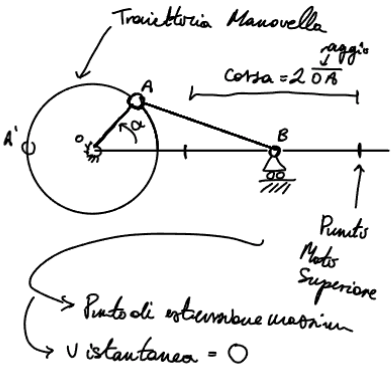 Traiettoria Manovella
raggio
Corsa = 2 OA
A
A'
O
α
B
Punto
Moto
Superiore
Punto di estensione massima
v istantanea = 0